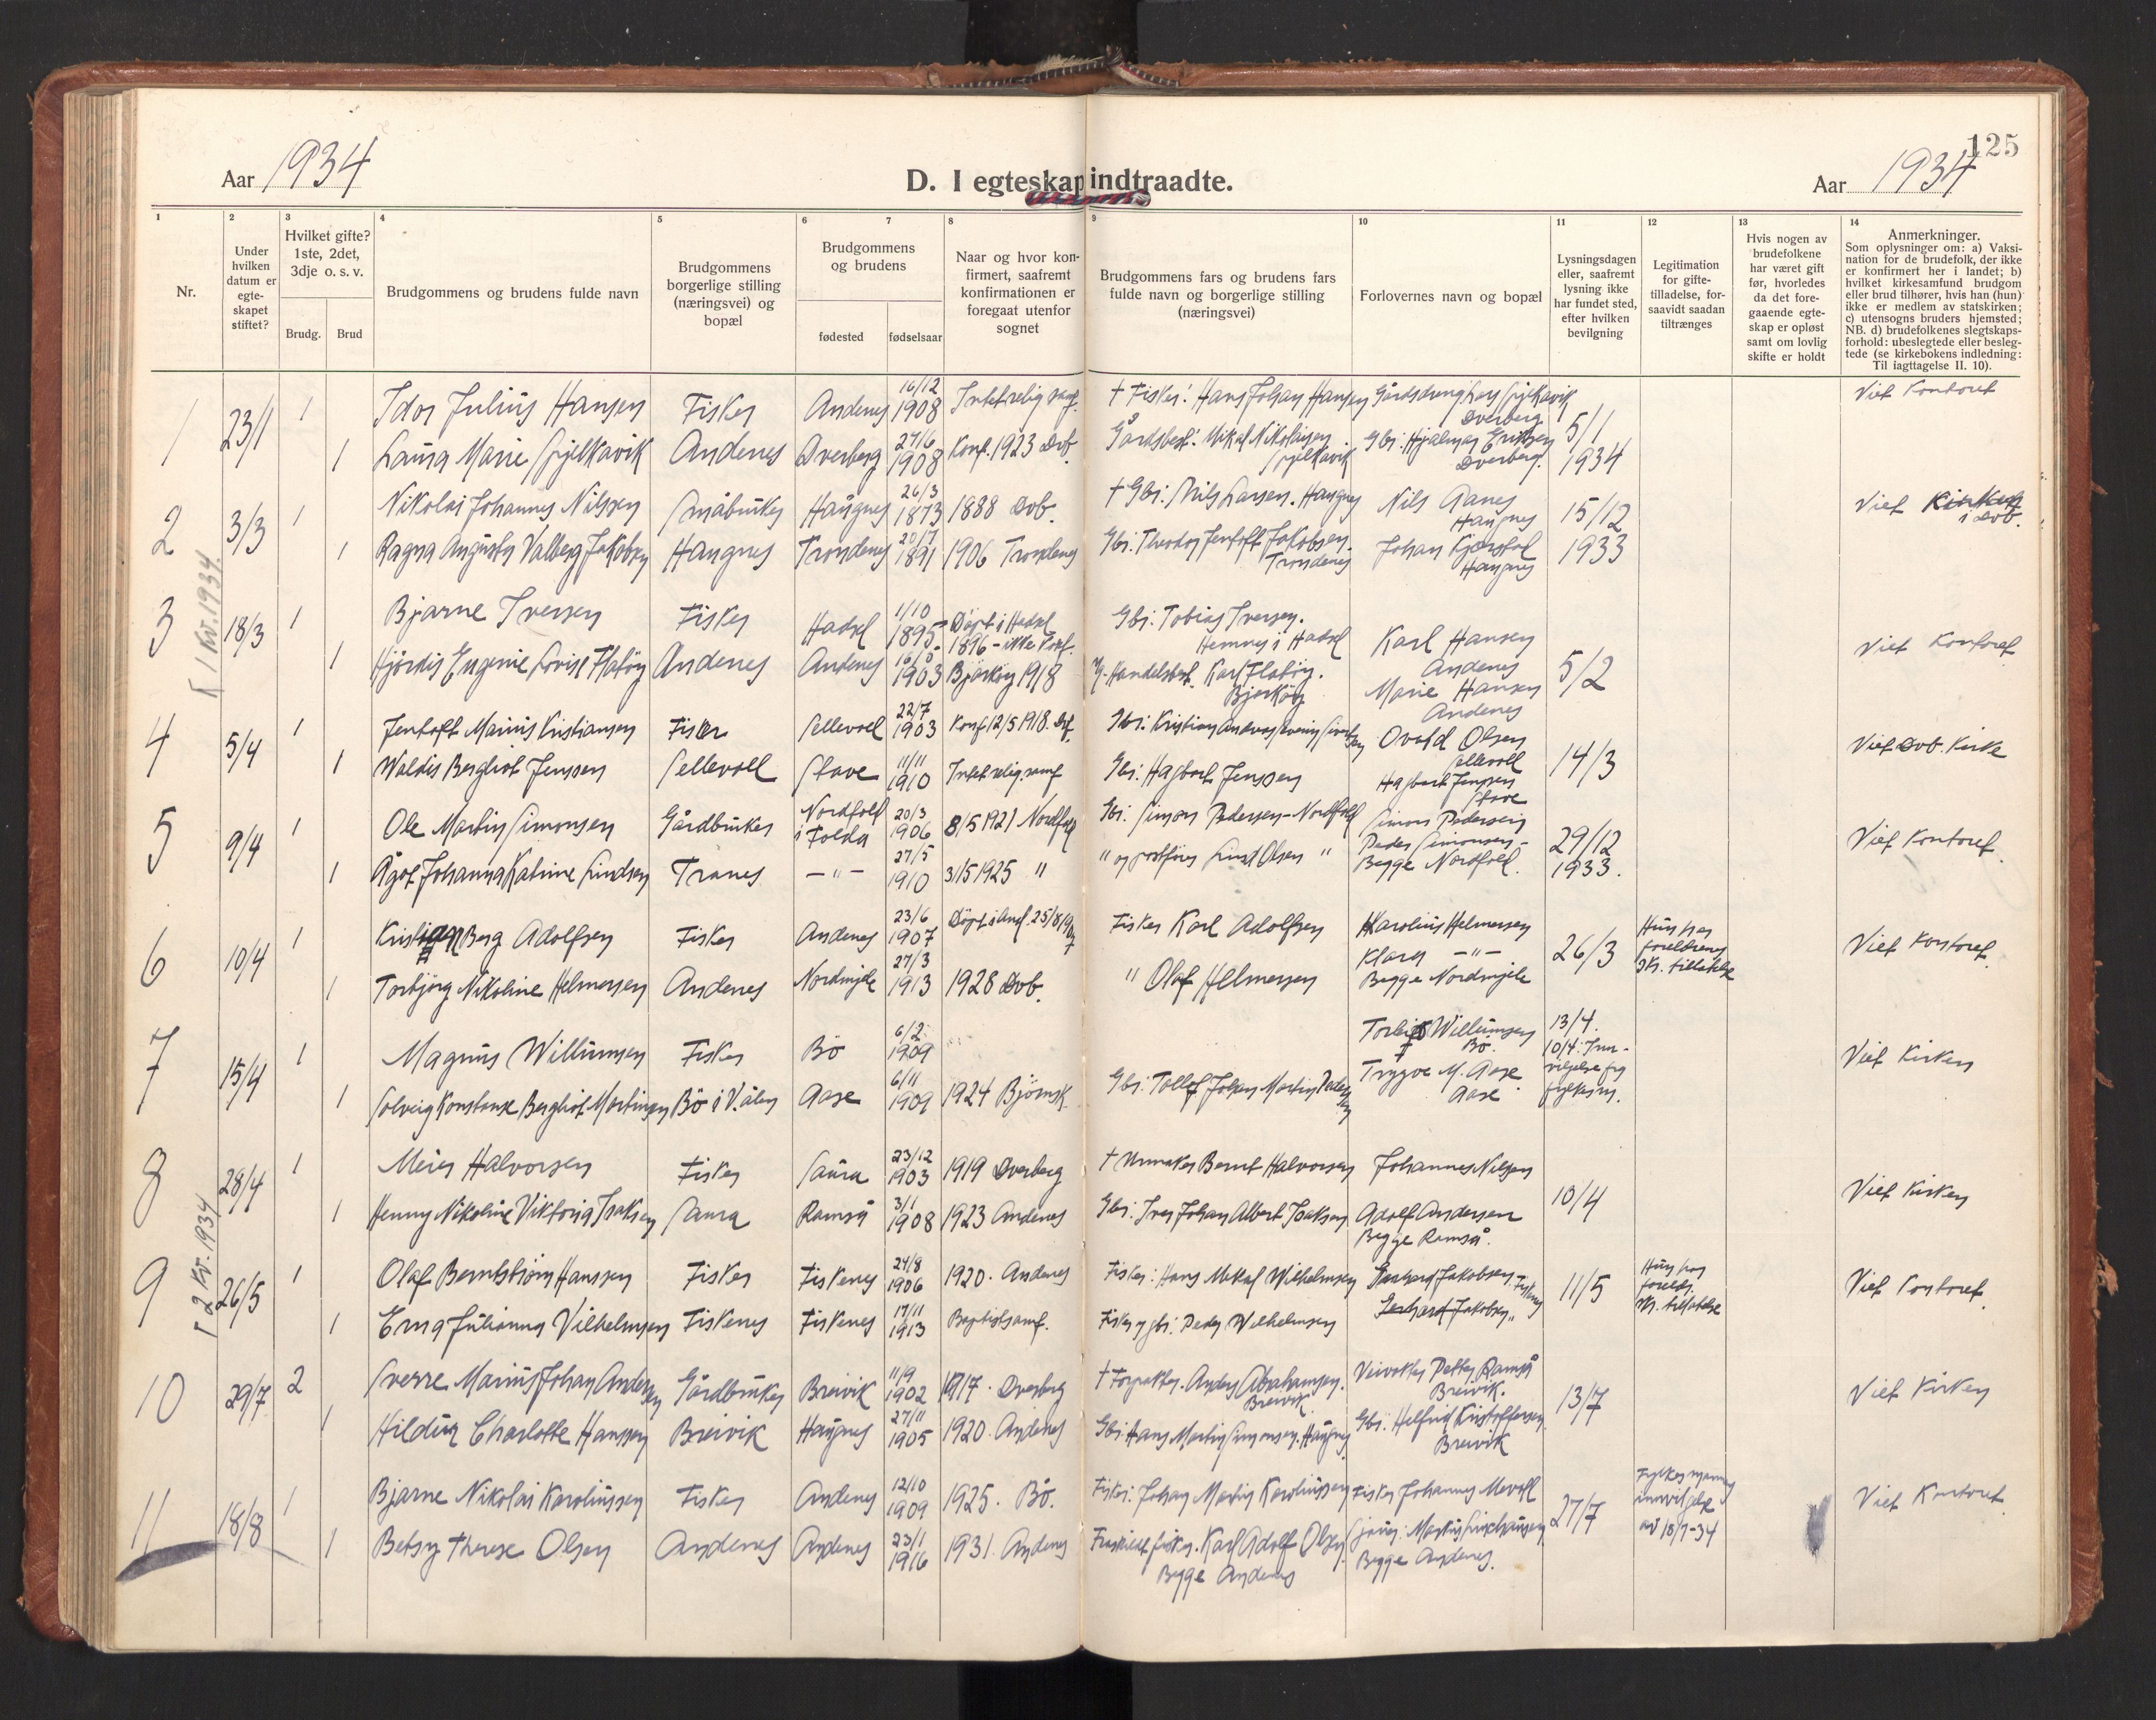 125
Aar 1934
D. I egteskap indtraadte.
Aar 1934
1 2 3 4 5 6 7 8 9 10 11 12 13 14
Nr.
Under hvilken datum er egteskapet stiftet?
Hvilket gifte? 1ste, 2det, 3dje o. s. v.
Brudg. Brud
Brudgommens og brudens fulde navn
Brudgommens borgerlige stilling (næringsvei) og bopæl
Brudgommens og brudens
fødested fødselsaar
Naar og hvor konfirmert, saafremt konfirmationen er foregaat utenfor sognet
Brudgommens fars og brudens fars fulde navn og borgerlige stilling (næringsvei)
Forlovernes navn og bopæl
Lysningsdagen eller, saafremt lysning ikke har fundet sted, efter hvilken bevilgning
Legitimation for giftetilladelse, forsaavidt saadan tiltrænges
Hvis nogen av brudefolkene har været gift før, hvorledes da det foregaaende egteskap er opløst samt om lovlig skifte er holdt
Anmerkninger.
Som oplysninger om: a) Vaksination for de brudefolk, der ikke er konfirmert her i landet; b) hvilket kirkesamfund brudgom eller brud tilhører, hvis han (hun) ikke er medlem av statskirken; c) utensogns bruders hjemsted; NB. d) brudefolkenes slegtskapsforhold: ubeslegtede eller beslegtede (se kirkebokens indledning: Til iagttagelse II. 10).
1 23/1 1 Idor Julius Hansen Fisker Andenes 16/12 1908 Intet relig samf. † Fisker: Hans Johan Hansen Gårdsdreng Lars Dverberg 5/1 1934 Viet kontoret
1 Laura Marie Andenes Dverberg 27/6 1908 Konf. 1923 Dvb. Gårdsbest: Mikal Nikolaisen Gbr: Hjalmar Eriksen Dverberg.
2 3/3 1 Nikolai Johannes Nilssen Småbruker Haugnes 26/3 1873 1888 Dvb. † Gbr: Nils Larsen. Haugnes Nils Aanes Haugnes 15/12 1933 Viet Kirken i Dvb.
1 Ragna Augusta Valberg Jakobsen Haugnes Trondenes 20/7 1891 1906 Trondenes Gbr: Theodor Jentoft Jakobsen. Trondenes Johan Haugnes
1 kv. 1934.
3 18/3 1 Bjarne Iversen Fisker Hadsel 1/10 1895 Døpt i Hadsel 1896 - ikke konf. Gbr: Tobias Iversen. Hemnes i Hadsel Karl Hansen Andenes 5/2 Viet kontoret
1 Hjördis Eugenie Lovise Flatöy Andenes Andenes 1903 Bjarköy 1918 Handelsbest. Karl Flatöy. Bjarköy Marie Hansen Andenes
4 5/4 1 Jentoft Marius Kristiansen Fisker Sellevoll 22/7 1903 Konf 12/5 1918. Gbr: Kristian Andreas Ovald Olsen Sellevoll 14/3 Viet Dvb. Kirke
1 Waldis Bergliot Jenssen Sellevoll Stave 11/11 1910 Intet relig samf Gbr: Hagbart Jenssen Hagbart Jenssen Stave
5 9/4 1 Ole Martin Simonsen Gårdbruker Nordfold i Folda 20/3 1906 8/5 1921 Nordfold Gbr. Simon Pedersen - Nordfold Simon Pedersen 29/12 1933. Viet kontoret.
1 Ågot Johanna Katrine Lindsen Tranes — " — 27/5 1910 31/5 1925 " " og Olsen " Peder Simonsen - Begge Nordfold.
6 10/4 1 Kristian Berg Adolfsen Fisker Andenes 23/6 1907 Döpt i 25/8 1907 Fisker Karl Adolfsen Karolius Helmersen 26/3 Hun har foreldrenes skr. tillatelse Viet kontoret.
1 Torbjörg Nikoline Helmersen Andenes Nordmjele 27/3 1913 1928 Dvb. " Olaf Helmersen Klara — " — Begge Nordmjele
7 15/4 1 Magnus Willumsen Fisker Bö 6/2 1909 Willumsen Bö. 13/4. 10/4: Viet Kirken
1 Solveig Konstanse Bergliot Martinsen Bö i V.ålen Aase 6/11 1909 1924 Björnsk. Gbr: Tollef Johan Martin Trygve M. Aase Aase
8 28/4 1 Meier Halvorsen Fisker Saura 23/12 1903 1919 Dverberg † Urmaker Bernt Halvorsen Johannes Nilsen 10/4 Viet Kirken
1 Henny Nikoline Viktoria Isaksen Saura Ramså 3/1 1908 1923 Andenes Gbr: Iver Johan Albert Isaksen Adolf Andersen Begge Ramså.
2 kv. 1934
9 26/5 1 Olaf Berntstiörn Hanssen Fisker Fiskenes 24/8 1906 1920. Andenes Fisker: Hans Mekal Wilhelmsen Gerhard Jakobsen 11/5 Hun har foreldr. skr. tillatelse Viet kontoret.
1 Erna Julianna Vilhelmsen Fiskenes Fiskenes 17/11 1913 Baptistsamf. Fisker og gbr. Peder Wilhelmsen Gerhard Jakobsen "
10 29/7 2 Sverre Marius Johan Andersen Gårdbruker Breivik 11/9 1902 1917. Dverberg † Forpakter. Anders Abrahamsen. Breivik Veivokter Petter Ramså Breivik. 13/7 Viet Kirken
1 Hildur Charlotte Hanssen Breivik Haugnes 27/11 1905 1920. Andenes Gbr. Hans Martin Simonsen. Haugnes Gbr: Helfrid Kristoffersen Breivik
11 18/8 1 Bjarne Nikolai Karoliussen Fisker Andenes 12/10 1909 1925. Bö. Fisker: Johan Martin Karoliussen Fisker Johannes 27/7 Fylkesmannens innvilgelse av 18/7-34 Viet kontoret.
1 Betsy Therese Olsen Andenes Andenes 23/1 1916 1931. Andenes Fraskilt fisker. Karl Adolf Olsen. Begge Andenes Begge Andenes.